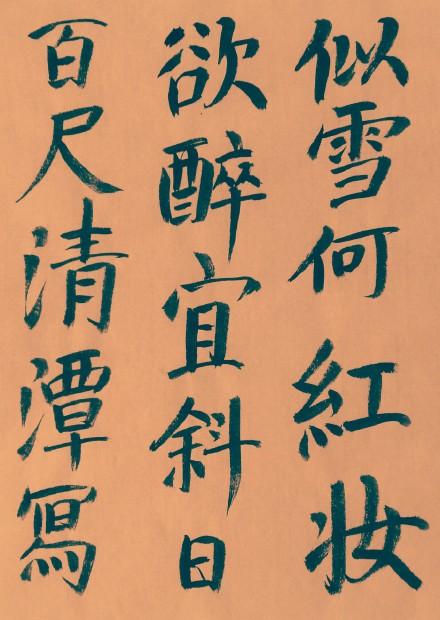 似雪何紅妝
欲醉宜斜日
百尺清潭寫